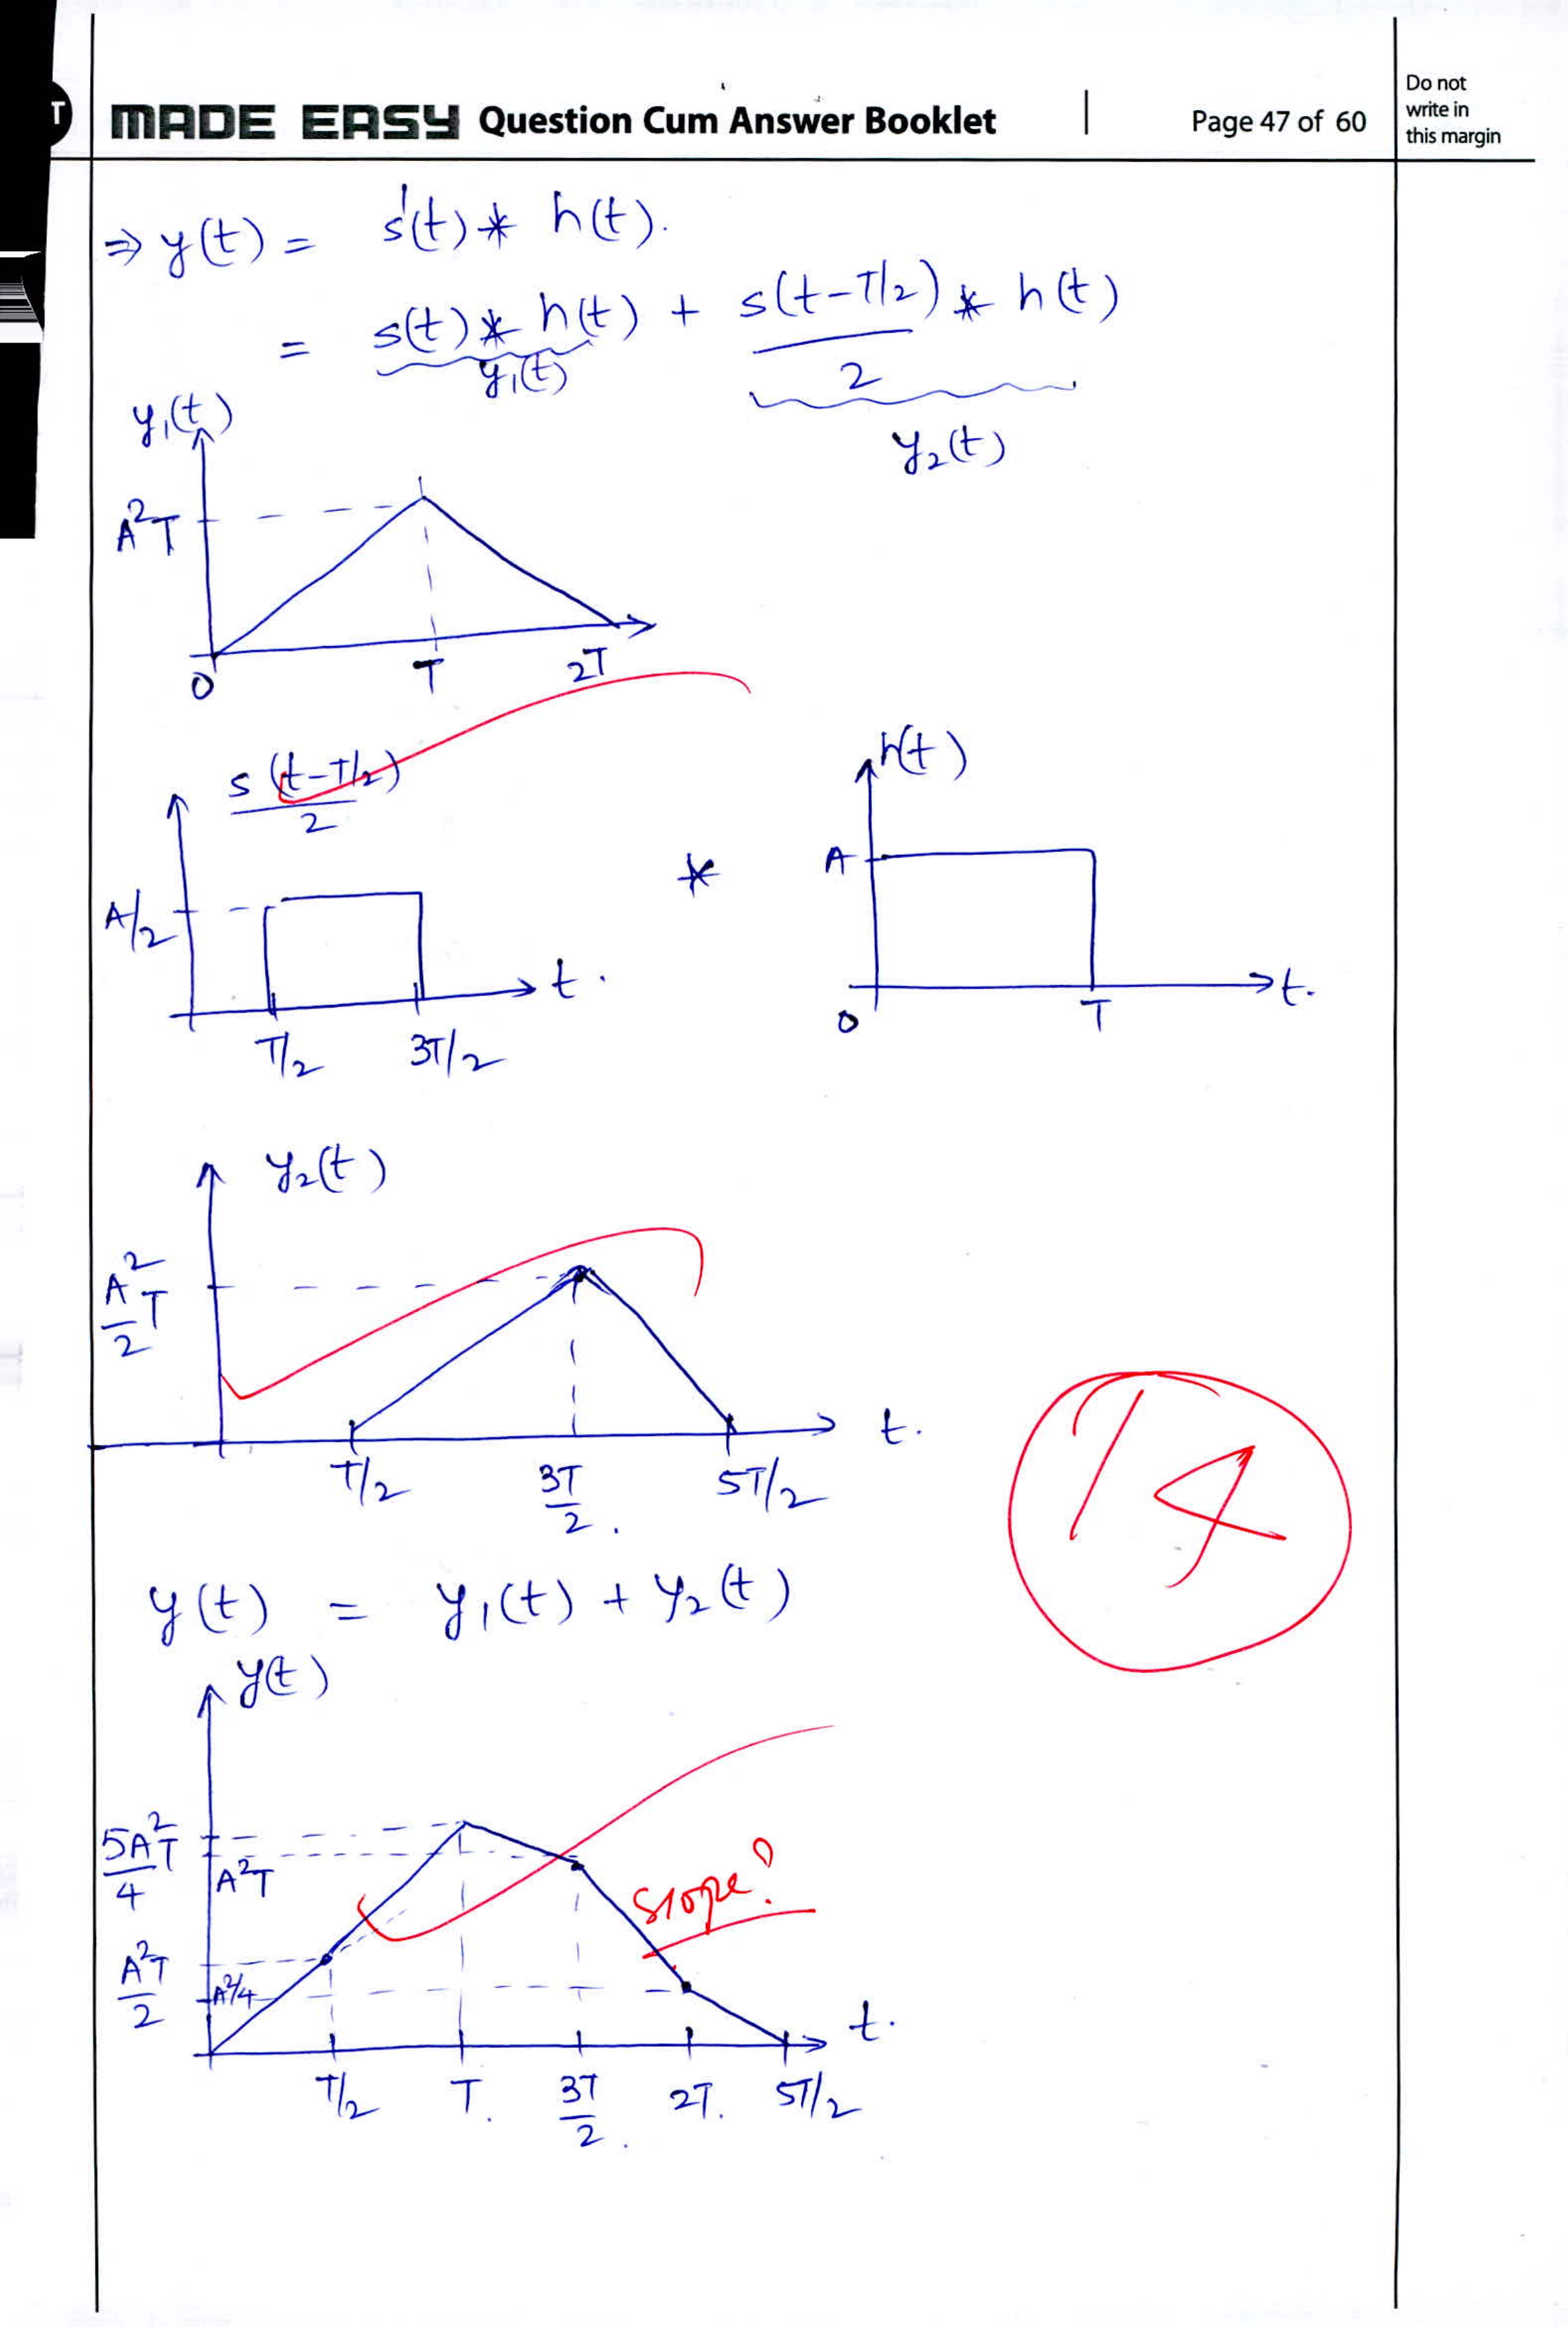 T
MADE EASY Question Cum Answer Booklet | Page 47 of 60
Do not
write in
this margin
⇒ y(t) = s'(t) * h(t).
= s(t) * h(t) + s(t-T/2)/2 * h(t)
y₁(t)
y₂(t)
y₁(t)
A²T
0 T 2T
s(t-T/2)
2
h(t)
A/2
*
A
t.
T/2 3T/2
0 T t.
y₂(t)
A²T/2
t.
T/2 3T/2. 5T/2
14
y(t) = y₁(t) + y₂(t)
y(t)
5A²T/4
A²T
slope?
A²T/2
A²/4
t.
T/2 T. 3T/2. 2T. 5T/2